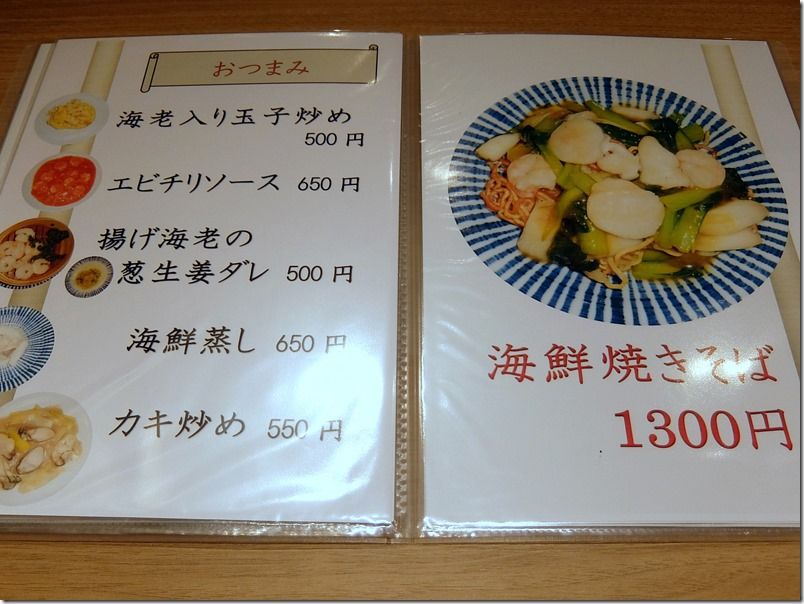 おつまみ
海老入り玉子炒め
500 円
エビチリソース 650 円
揚げ海老の
葱生姜ダレ 500 円
海鮮蒸し 650 円
カキ炒め 550 円
海鮮焼きそば
1300円